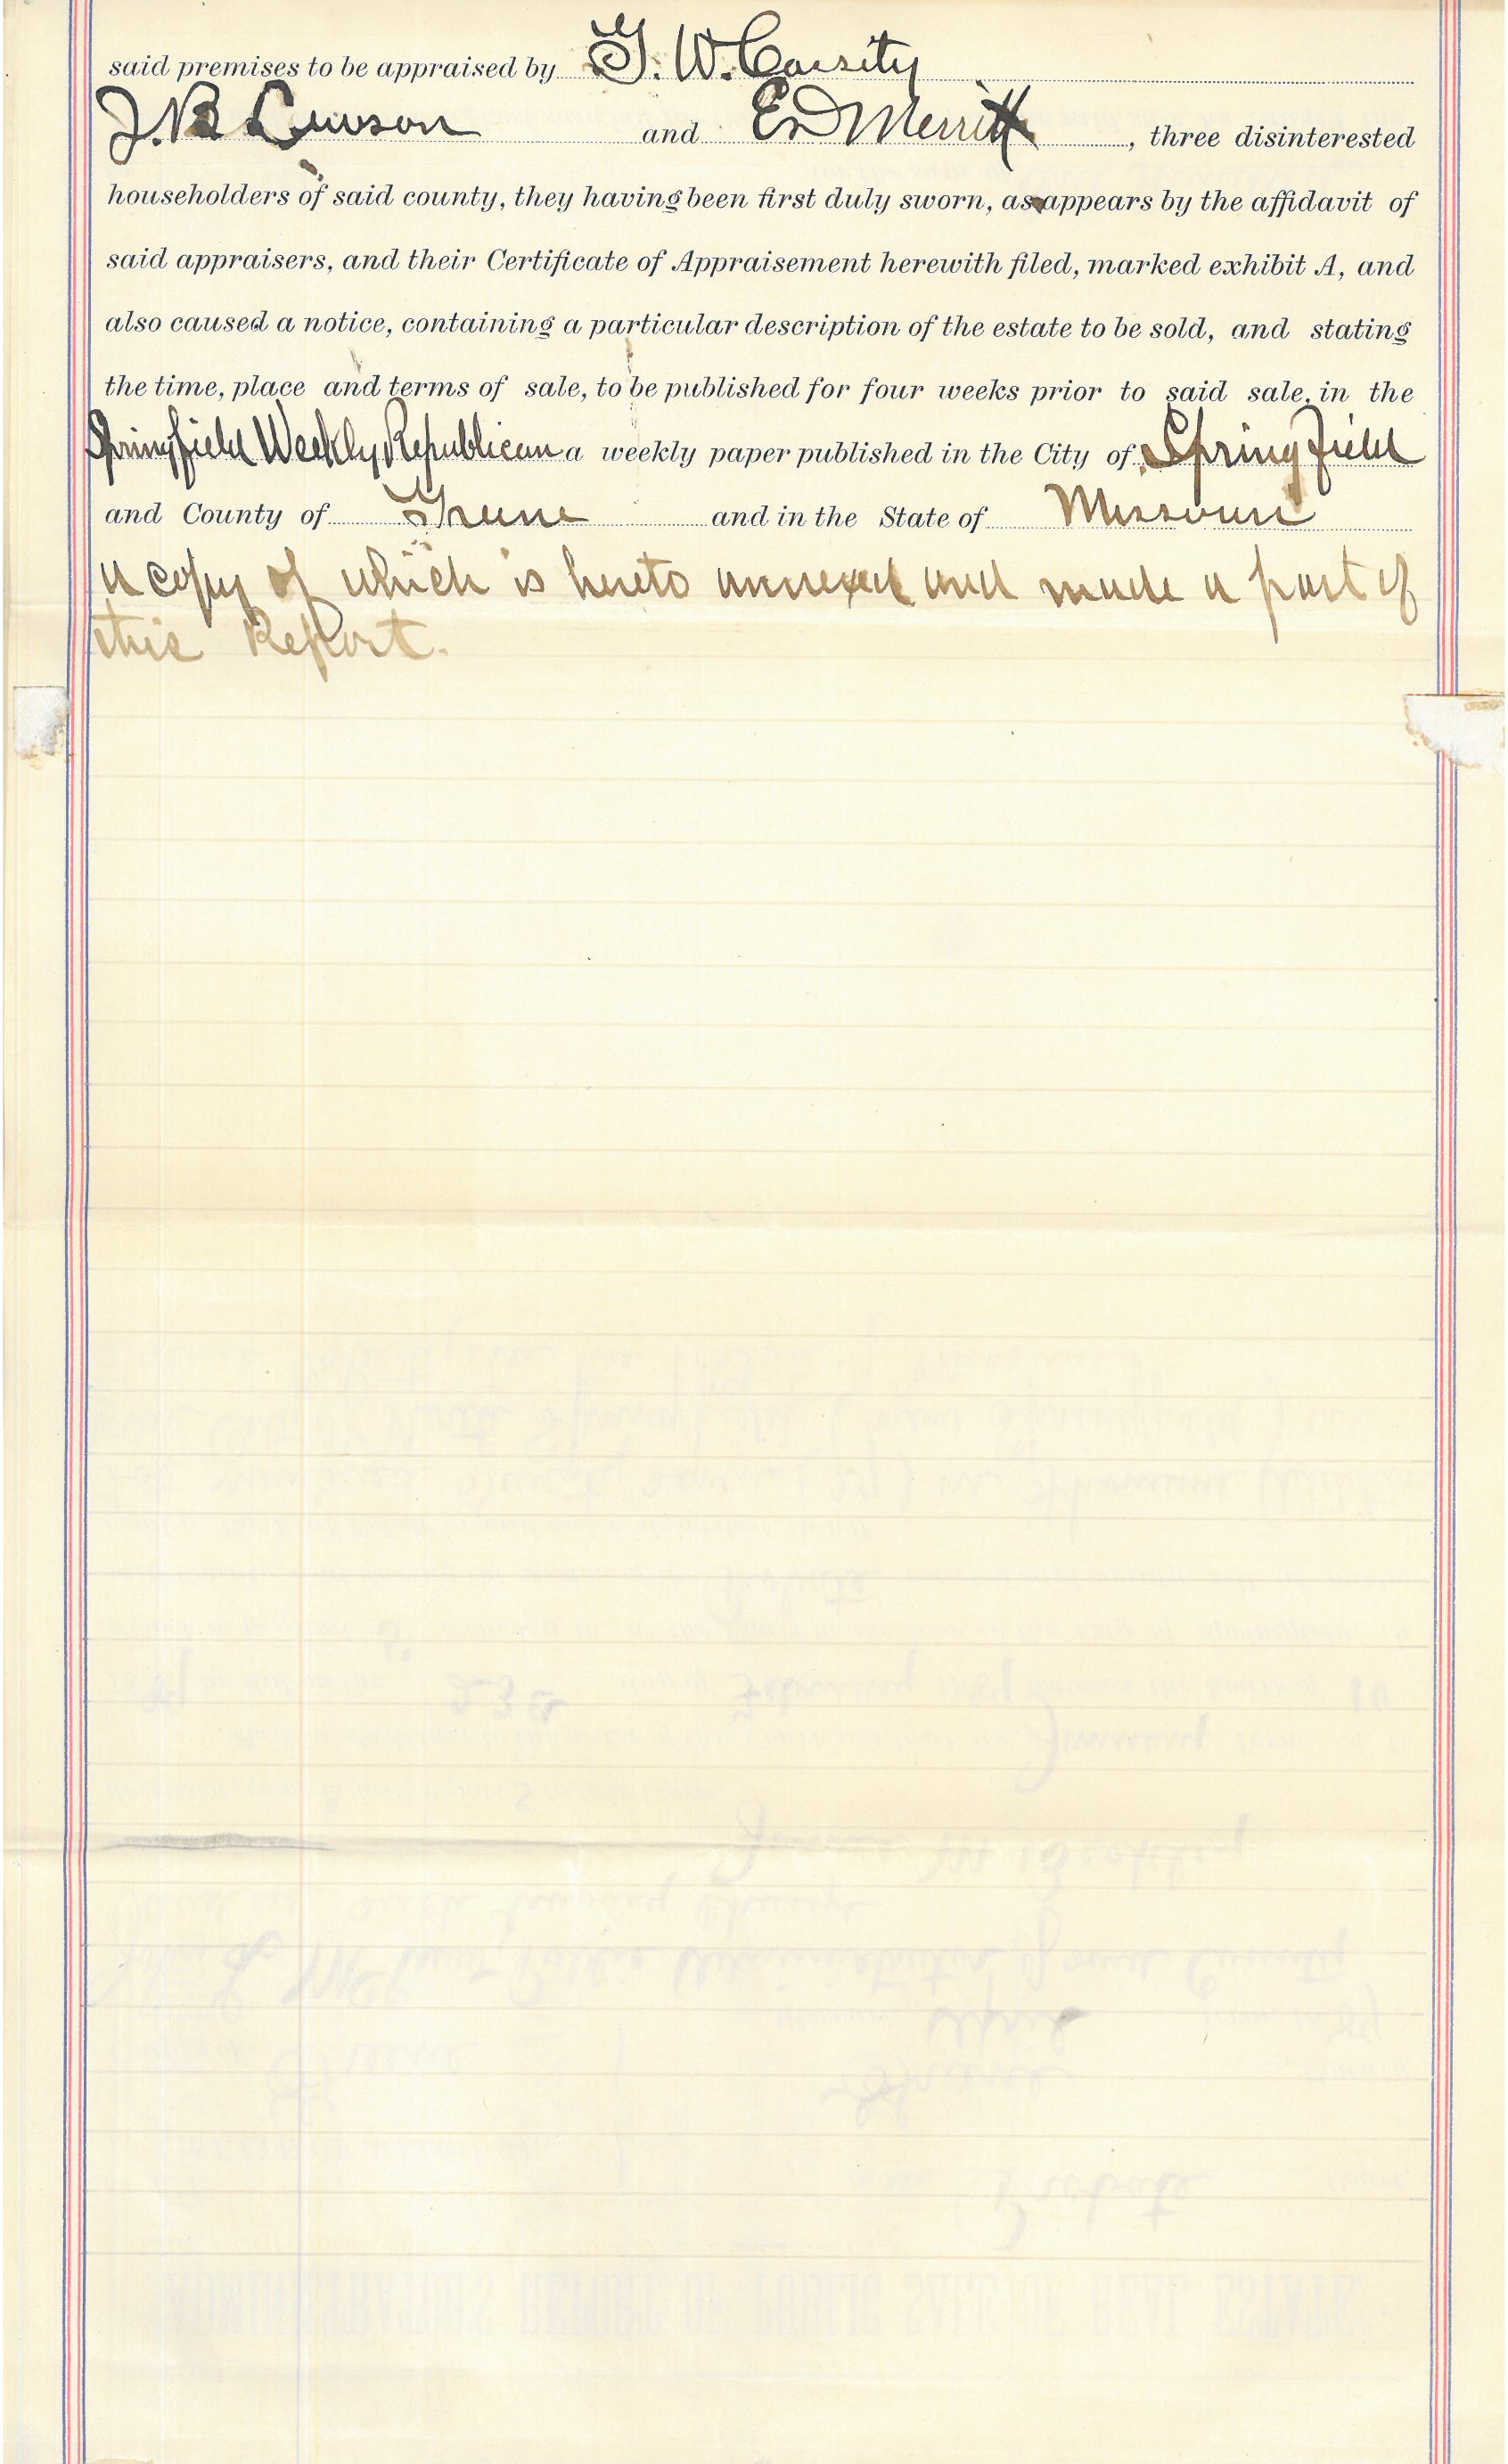 said premises to be appraised by G. W. Cassity
J. B. Lawson and Ed Merritt, three disinterested
householders of said county, they having been first duly sworn, as appears by the affidavit of
said appraisers, and their Certificate of Appraisement herewith filed, marked exhibit A, and
also caused a notice, containing a particular description of the estate to be sold, and stating
the time, place and terms of sale, to be published for four weeks prior to said sale, in the
Springfield Weekly Republican a weekly paper published in the City of Springfield
and County of Greene and in the State of Missouri
a copy of which is hereto annexed and made a part of
this Report.